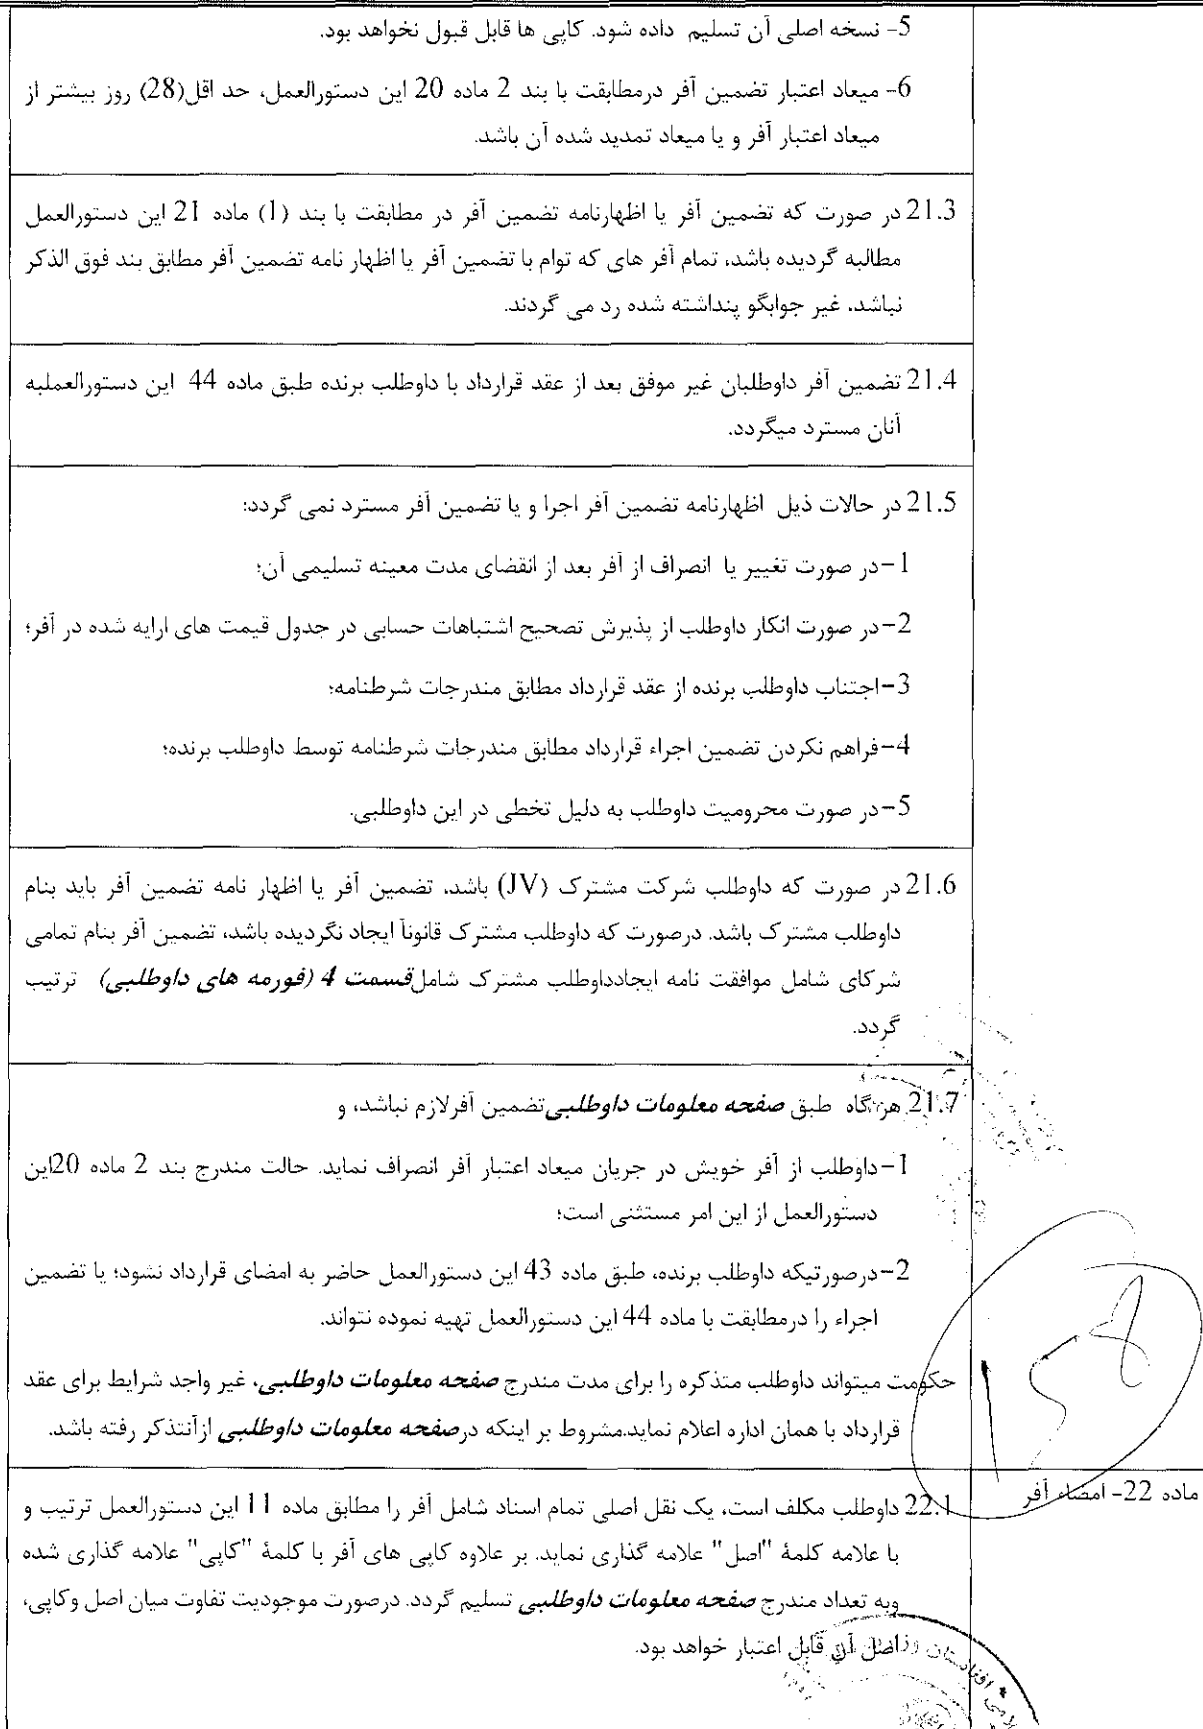 5- نسخه اصلی آن تسلیم داده شود. کاپی ها قابل قبول نخواهد بود.
6- میعاد اعتبار تضمین آفر درمطابقت با بند 2 ماده 20 این دستورالعمل، حد اقل(28) روز بیشتر از
میعاد اعتبار آفر و یا میعاد تمدید شده آن باشد.
21.3 در صورت که تضمین آفر یا اظهارنامه تضمین آفر در مطابقت با بند (1) ماده 21 این دستورالعمل
مطالبه گردیده باشد، تمام آفر های که توام با تضمین آفر یا اظهار نامه تضمین آفر مطابق بند فوق الذکر
نباشد، غیر جوابگو پنداشته شده رد می گردند.
21.4 تضمین آفر داوطلبان غیر موفق بعد از عقد قرارداد با داوطلب برنده طبق ماده 44 این دستورالعملبه
آنان مسترد میگردد.
21.5 در حالات ذیل اظهارنامه تضمین آفر اجرا و یا تضمین آفر مسترد نمی گردد:
1-در صورت تغییر یا انصراف از آفر بعد از انقضای مدت معینه تسلیمی آن؛
2-در صورت انکار داوطلب از پذیرش تصحیح اشتباهات حسابی در جدول قیمت های ارایه شده در آفر؛
3-اجتناب داوطلب برنده از عقد قرارداد مطابق مندرجات شرطنامه؛
4-فراهم نکردن تضمین اجراء قرارداد مطابق مندرجات شرطنامه توسط داوطلب برنده؛
5-در صورت محرومیت داوطلب به دلیل تخطی در این داوطلبی.
21.6 در صورت که داوطلب شرکت مشترک (JV) باشد، تضمین آفر یا اظهار نامه تضمین آفر باید بنام
داوطلب مشترک باشد. درصورت که داوطلب مشترک قانوناً ایجاد نگردیده باشد، تضمین آفر بنام تمامی
شرکای شامل موافقت نامه ایجادداوطلب مشترک شاملقسمت 4 (فورمه های داوطلبی) ترتیب
گردد.
21.7 هرگاه طبق صفحه معلومات داوطلبیتضمین آفرلازم نباشد، و
1-داوطلب از آفر خویش در جریان میعاد اعتبار آفر انصراف نماید. حالت مندرج بند 2 ماده 20این
دستورالعمل از این امر مستثنی است؛
2-درصورتیکه داوطلب برنده، طبق ماده 43 این دستورالعمل حاضر به امضای قرارداد نشود؛ یا تضمین
اجراء را درمطابقت با ماده 44 این دستورالعمل تهیه نموده نتواند.
حکومت میتواند داوطلب متذکره را برای مدت مندرج صفحه معلومات داوطلبی، غیر واجد شرایط برای عقد
قرارداد با همان اداره اعلام نماید.مشروط بر اینکه درصفحه معلومات داوطلبی ازآنتذکر رفته باشد.
ماده 22- امضاء آفر
22.1 داوطلب مکلف است، یک نقل اصلی تمام اسناد شامل آفر را مطابق ماده 11 این دستورالعمل ترتیب و
با علامه کلمۀ "اصل" علامه گذاری نماید. بر علاوه کاپی های آفر با کلمۀ "کاپی" علامه گذاری شده
وبه تعداد مندرج صفحه معلومات داوطلبی تسلیم گردد. درصورت موجودیت تفاوت میان اصل وکاپی،
اصل آن قابل اعتبار خواهد بود.